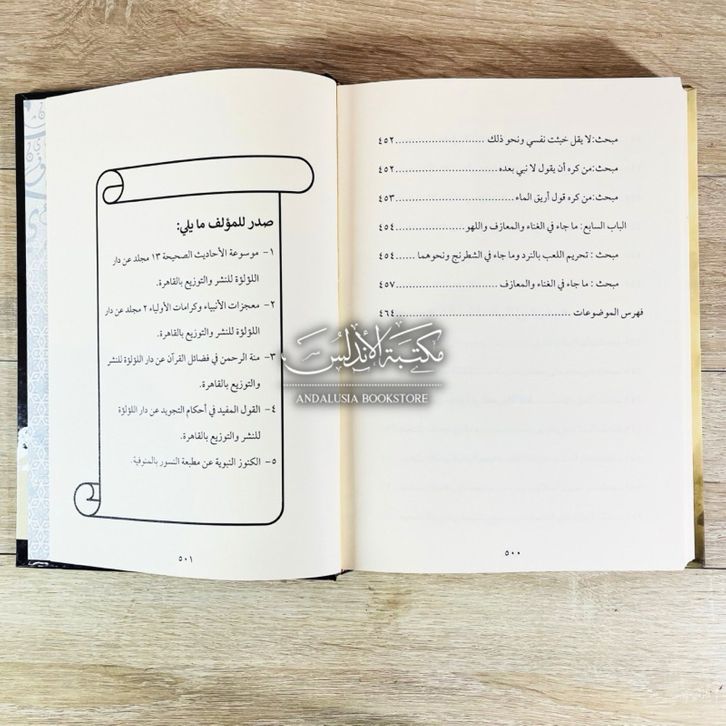 مبحث:لا يقل خبثت نفسي ونحو ذلك ............................ ٤٥٢
مبحث:من كره أن يقول لا نبي بعده ............................ ٤٥٢
مبحث:من كره قول أريق الماء ............................ ٤٥٣
الباب السابع: ما جاء في الغناء والمعازف واللهو ............ ٤٥٤
مبحث : تحريم اللعب بالنرد وما جاء في الشطرنج ونحوهما ........ ٤٥٤
مبحث : ما جاء في الغناء والمعازف ............................ ٤٥٧
فهرس الموضوعات ............................ ٤٦٤
٥٠٠
صدر للمؤلف ما يلي:
١- موسوعة الأحاديث الصحيحة ١٣ مجلد عن دار
اللؤلؤة للنشر والتوزيع بالقاهرة.
٢- معجزات الأنبياء وكرامات الأولياء ٢ مجلد عن دار
اللؤلؤة للنشر والتوزيع بالقاهرة.
٣- منة الرحمن في فضائل القرآن عن دار اللؤلؤة للنشر
والتوزيع بالقاهرة.
٤- القول المفيد في أحكام التجويد عن دار اللؤلؤة
للنشر والتوزيع بالقاهرة.
٥- الكنوز النبوية عن مطبعة النسور بالمنوفية.
٥٠١
مكتبة الأندلس
ANDALUSIA BOOKSTORE